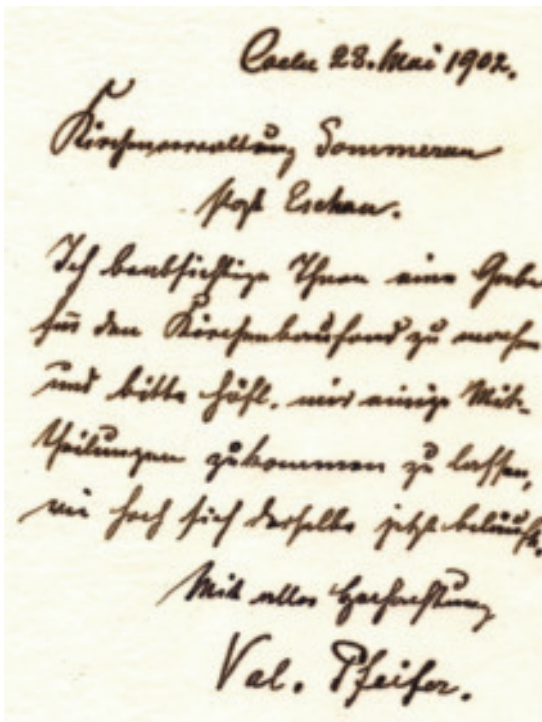 Coeln 28. Mai 1902.
Kirchenverwaltung Sommerau
Post Eschau.
Ich beabsichtige Ihnen eine Gabe
für den Kirchenbaufond zu machen
und bitte höfl. mir einige Mit-
theilungen zukommen zu lassen,
wie hoch sich derselbe jetzt beläuft.
Mit aller Hochachtung
Val. Pfeifer.